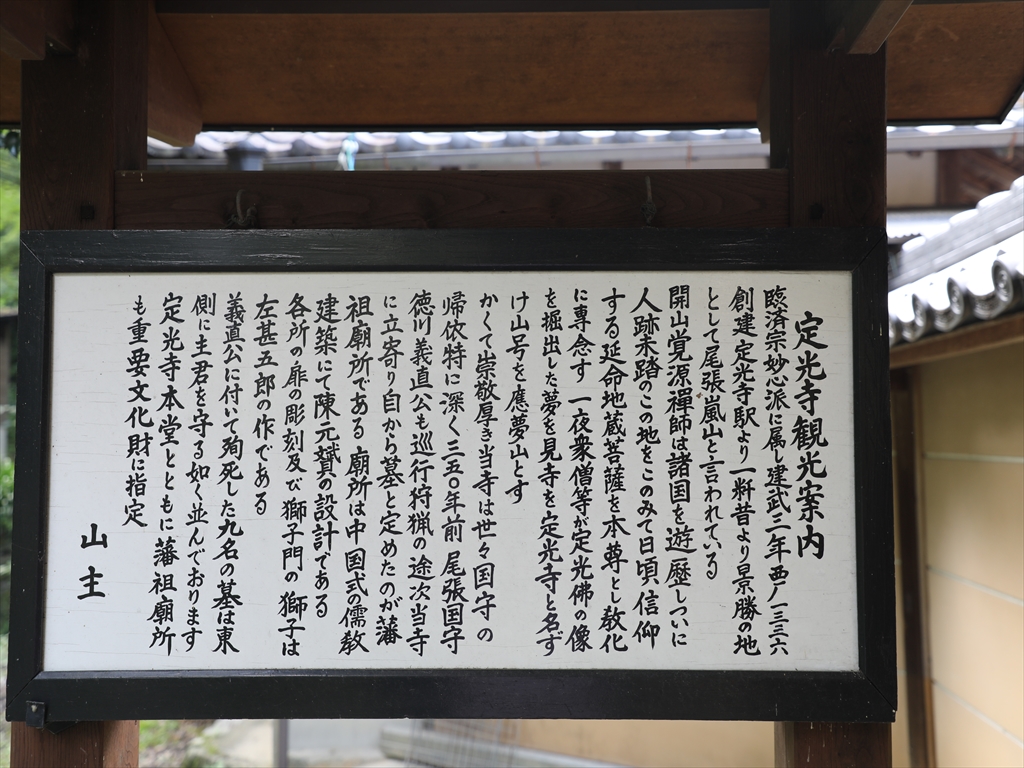 定光寺観光案内
臨済宗妙心派に属し建武三年西ノ一三三六
創建定光寺駅より一粁昔より景勝の地
として尾張嵐山と言われている
開山覚源禪師は諸国を遊歴しついに
人跡未踏のこの地をこのみて日頃信仰
する延命地蔵菩薩を本尊とし教化
に専念す 一夜衆僧等が定光佛の像
を掘出した夢を見寺を定光寺と名ず
け山号を應夢山とす
かくて崇敬厚き当寺は世々国守の
帰依特に深く三五〇年前 尾張国守
徳川義直公も巡行狩猟の途次当寺
に立寄り自から墓と定めたのが藩
祖廟所である 廟所は中国式の儒教
建築にて陳元贇の設計である
各所の扉の彫刻及び獅子門の獅子は
左甚五郎の作である
義直公に付いて殉死した九名の墓は東
側に主君を守る如く並んでおります
定光寺本堂とともに藩祖廟所
も重要文化財に指定
山主